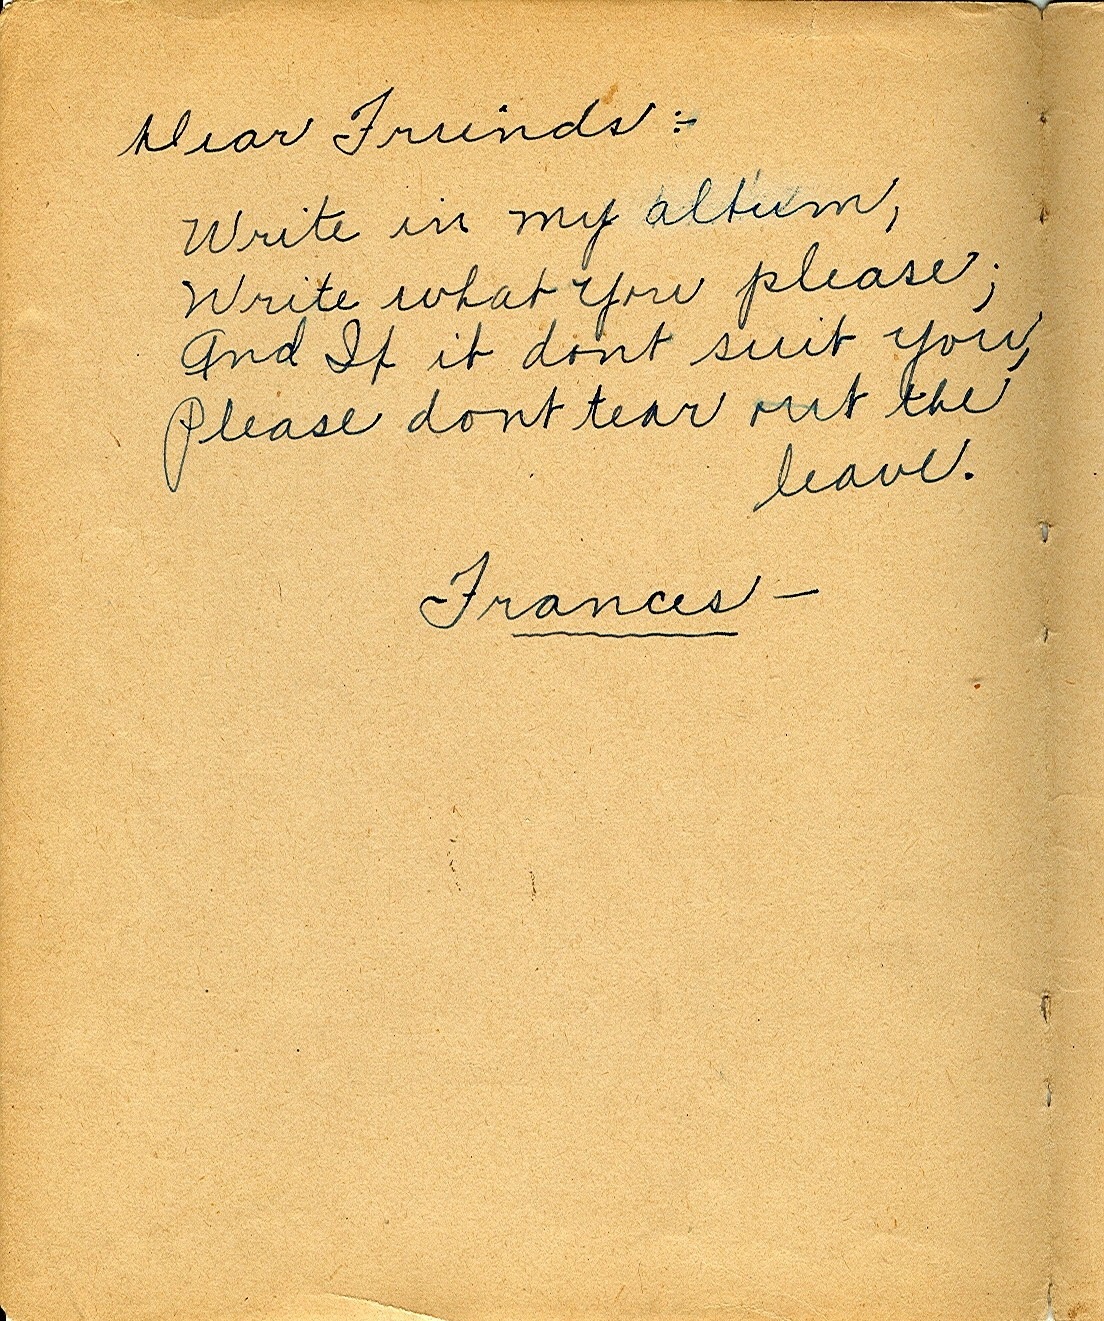 Dear Friends:-
Write in my album,
Write what you please;
And If it dont suit you,
Please dont tear out the
leave.
Frances -